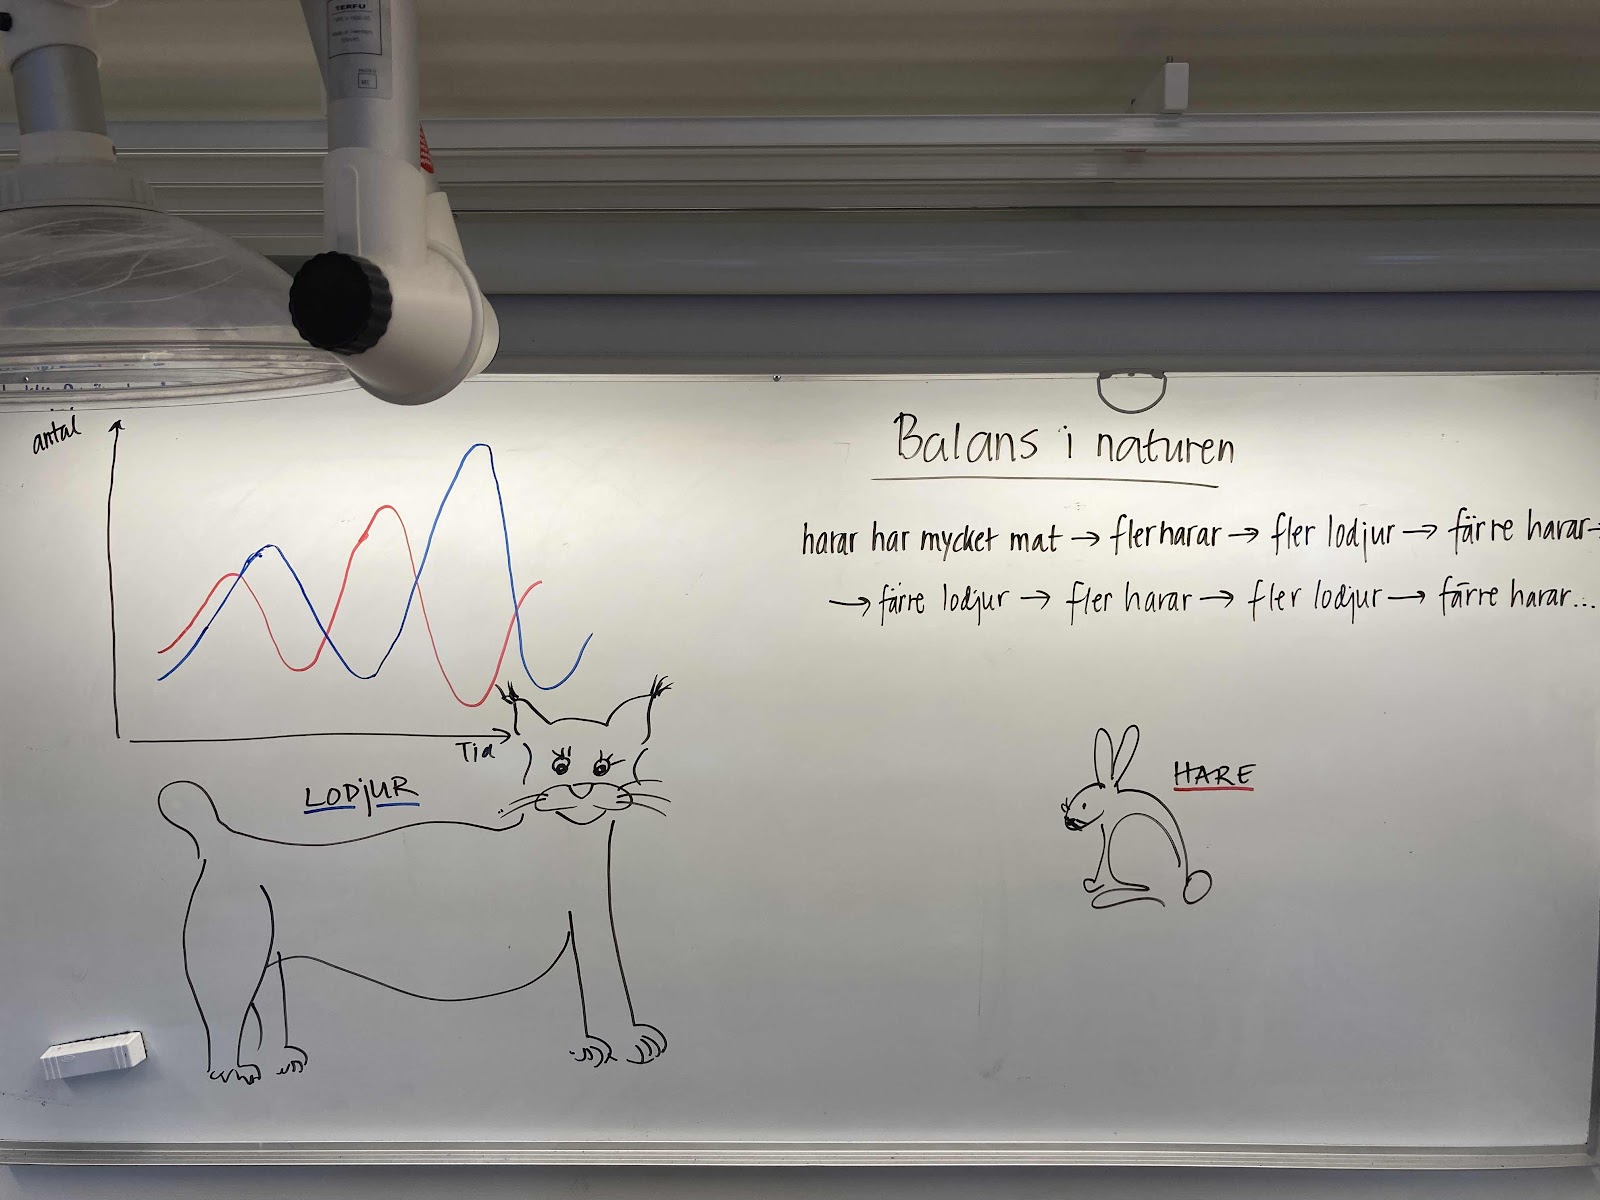 TERFU
antal
Tid
LODjUR
Balans i naturen
harar har mycket mat → fler harar → fler lodjur → färre harar →
→ färre lodjur → fler harar → fler lodjur → färre harar...
HARE